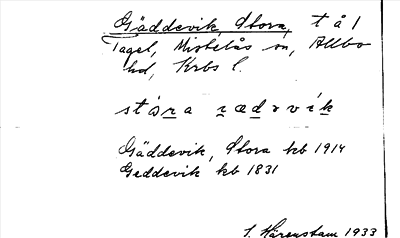 Gäddevik, Stora, t å l
Tagel, Mistelås sn, Allbo
hd, Krbs l.
stóra ɀædəvík
Gäddevik, Stora kb 1914
Geddevik kb 1831
S. Härenstam 1933